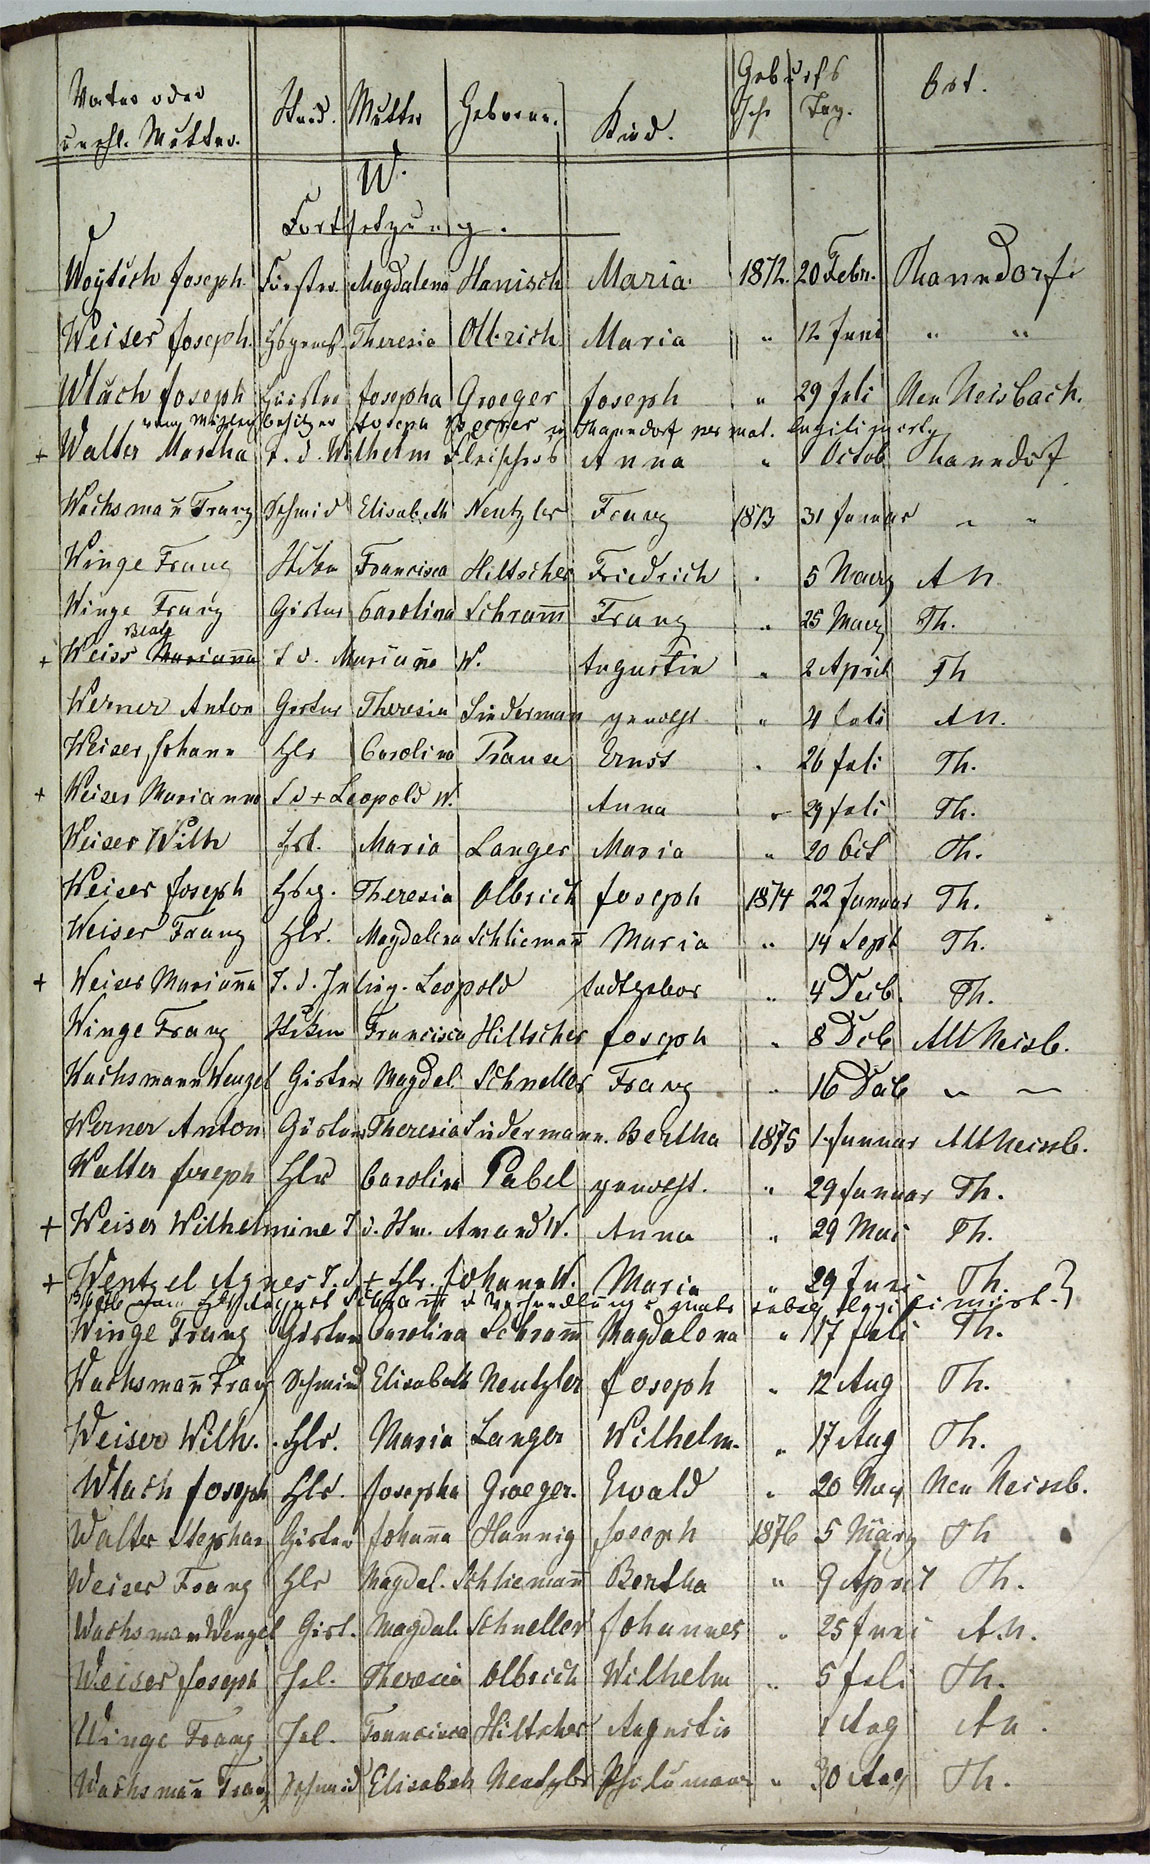 Vater oder unehl. Mutter. Stand. Mutter Geborene. Kind. Geburts Jahr Tag. Ort.
W.
Fortsetzung.
Woytech Joseph Förster Magdalena Hanisch Maria 1872. 20 Febr. Thanndorf
Weiser Joseph. Theresia Olbrich Maria " 12 Juni " "
Wlach Joseph Häusler Josepha Groeger Joseph " 29 Juli Neu Neisbach.
besitzer Joseph in Thanndorf per mat. legitimirt
+ Walter Martha T. d. Wilhelm Anna " 1 Octob Thanndorf
Wachsman̄ Franz Schmid Elisabeth Nentzler Franz 1873 31 Januar " "
Winge Franz Francisca Hiltscher Friedrich " 5 Maerz A N.
Winge Franz Gärtner Carolina Schram̄ Franz " 25 Maerz Th.
Beate
+ Weiss Mariann̄a T d. Marian̄e W. Augustin " 2 April Th
Werner Anton Gärtner Theresia Lindermann genothft " 4 Juli A N.
Weiser Johann Hlr Carolina Franse Ernst " 26 Juli Th.
+ Weiser Marianna T d + Leopold W. Anna " 29 Juli Th.
Weiser Wilh Maria Langer Maria " 20 Oct Th.
Weiser Joseph Theresia Olbrich Joseph 1874 22 Januar Th.
Weiser Franz Hlr. Magdalena Schlieman̄ Maria " 14 Sept Th.
+ Weiser Marian̄a T. d. Leopold todtgebor " 4 Decb. Th.
Winge Franz Francisca Hiltscher Joseph " 8 Dcb Alt Neisb.
Wachsmann Wenzel Gärtner Magdel. Schneller Franz " 16 Dcb " "
Werner Anton Gärtner Theresia Lindermann. Bertha 1875 1. Januar Alt Neissb.
Walter Joseph Hlr Carolina Pabel genothft. " 29 Januar Th.
+ Weiser Wilhelmine T d. Amand W. Anna " 29 Mai Th.
+ Wentzel Agnes T. d. + Hlr. Johann W. Maria " 29 Juni Th.
August legitimirt.}
Winge Franz Gärtner Carolina Schram̄ Magdalena " 17 Juli Th.
Wachsman̄ Franz Schmied Elisabeth Nentzler Joseph " 12 Aug Th.
Weiser Wilh. Hlr. Maria Langer Wilhelm. " 17 Aug Th.
Wlach Joseph Hlr. Josepha Groeger. Ewald " 20 Nov Neu Neissb.
Walter Stephan Gärtner Johan̄a Hannig Joseph 1876 5 März Th
Weiser Franz Hlr Magdal. Schlieman̄ Bertha " 9 April Th.
Wachsman Wenzel Gärt. Magdal. Schneller Johannes " 25 Juni A.N.
Weiser Joseph Theresia Olbrich Wilhelm " 5 Juli Th.
Winge Franz Francisca Hiltscher Augustin 1 Aug An.
Wachsman̄ Franz Schmid Elisabeth Nentzler " 30 Aug Th.